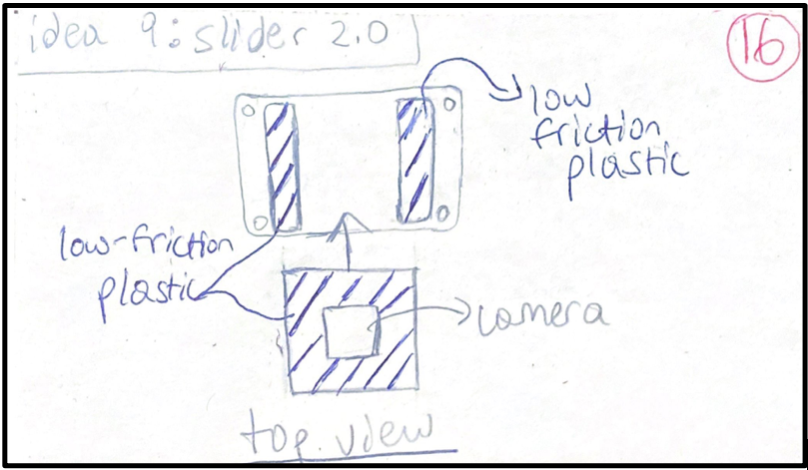 idea 9: slider 2.0
16
low
friction
plastic
low-friction
plastic
camera
top view